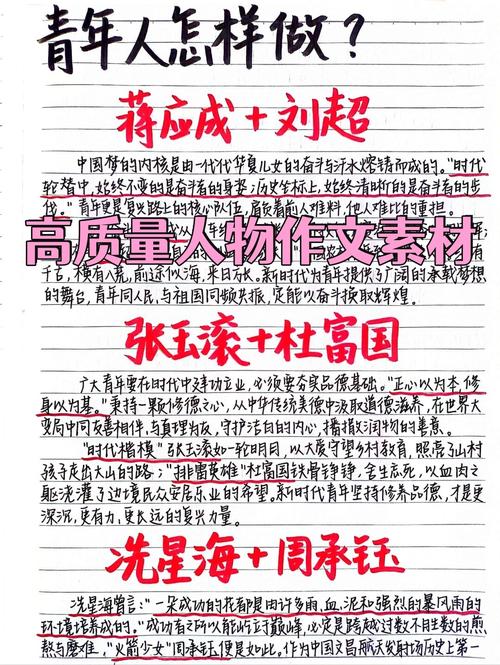 青年人怎样做?
蒋应成+刘超
中国梦的内核是由一代代华夏儿女的奋斗与汗水熔铸而成的。"时代
轮替中,始终不变的是奋斗者的身姿;历史坐标上,始终清晰的是奋斗者的步
伐。"青年更是复兴路上的核心队伍,肩负着前人难料,他人难比的重担。
高质量人物作文素材
千古,横有八荒,前途似海,来日方长。新时代为青年提供了广阔的承载梦想
的舞台,青年同人民、与祖国同频共振,定能以奋斗换取辉煌。
张玉滚+杜富国
广大青年要在时代中建功立业,必须要夯实品德基础。"正心以为本,修
身以为基。"秉持一颗修德之心,从中华传统美德中汲取道德滋养,在世界大
变局中同友善相伴,与真理为友,守护洁白的内心,播撒润物的善意。
"时代楷模"张玉滚如一轮明月,以大爱守望乡村教育,照亮了山村
孩子走出大山的路;"排雷英雄"杜富国铁骨铮铮,舍生忘死,以血肉之
躯浇灌了边境民众安居乐业的希望。新时代青年坚持修养品德,才是更
深沉,更有力,更长远的复兴力量。
冼星海+周承钰
冼星海曾言:"一朵成功的花都是由许多雨、血、泥和强烈的暴风雨的
环境培养成的。"成功者之所以能屹立于巅峰,必定是跨越过数不胜数的煎
熬与磨难。"火箭少女"周承钰便是如此,作为中国文昌航天发射场历史上第一